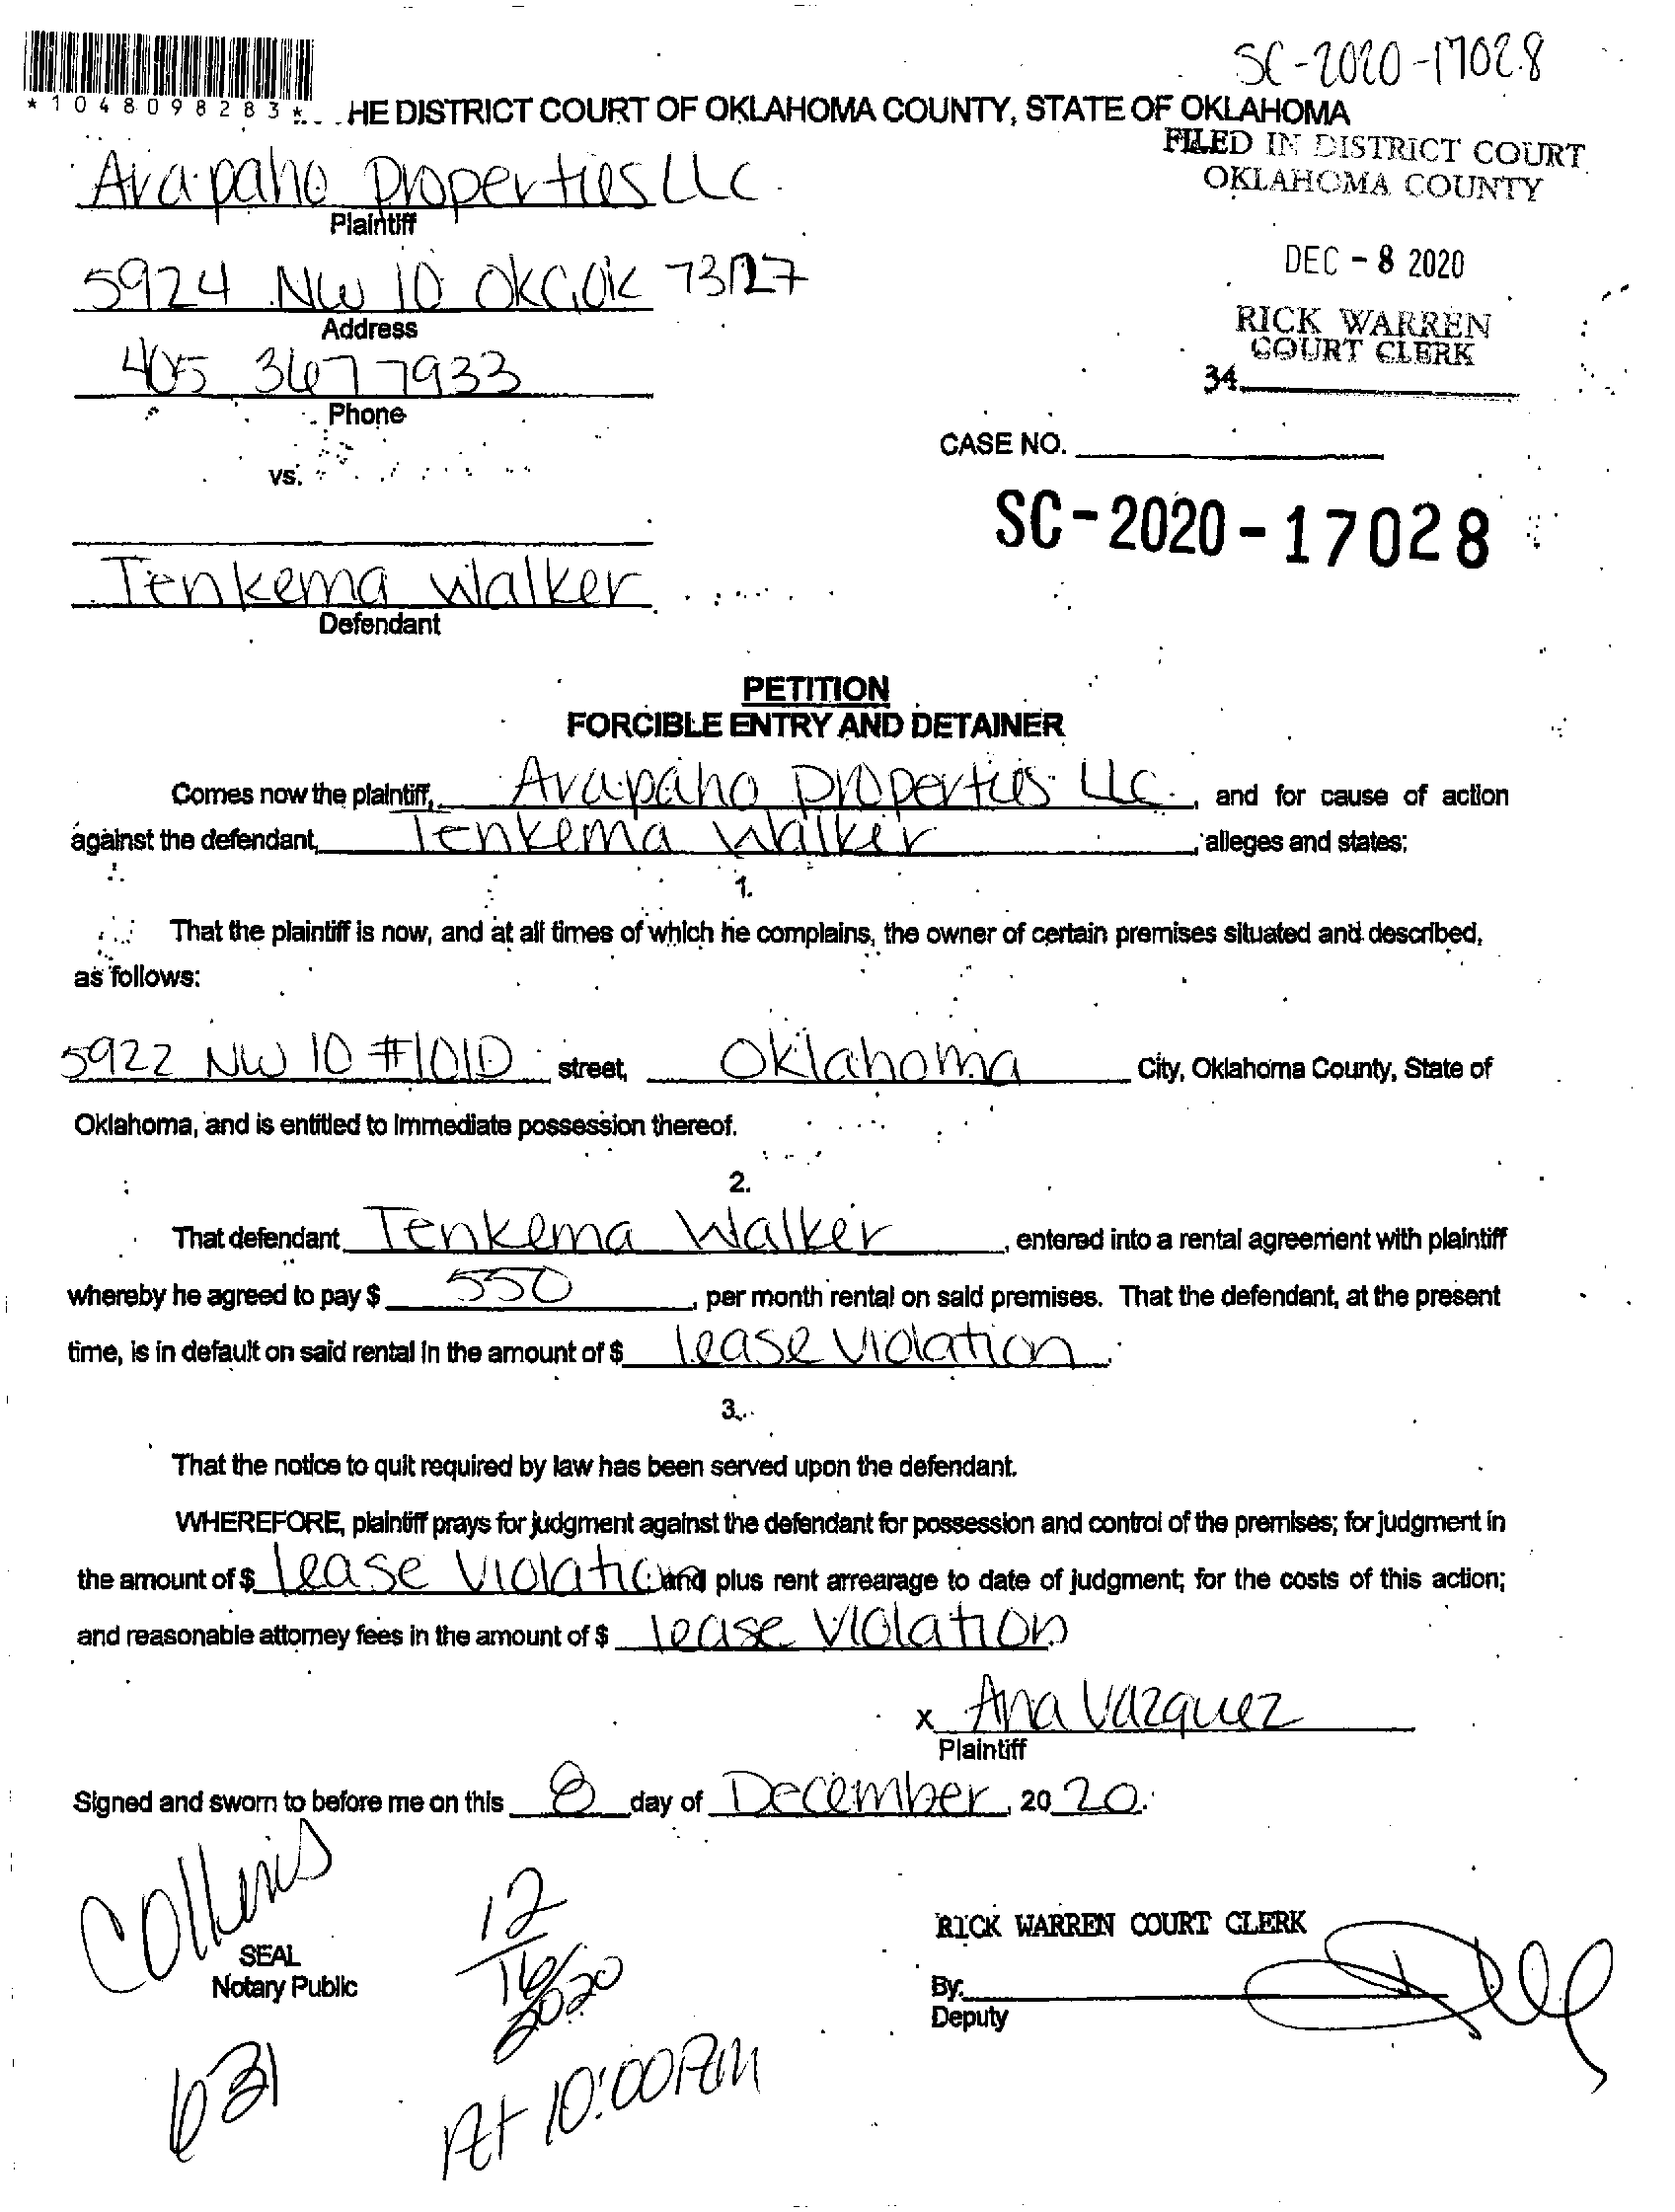 SC-2020-17028
*1048098283*
HE DISTRICT COURT OF OKLAHOMA COUNTY, STATE OF OKLAHOMA
FILED IN DISTRICT COURT
OKLAHOMA COUNTY
Arapaho Properties LLC
Plaintiff
DEC - 8 2020
5924 NW 10 OKC, OK 73127
Address
RICK WARREN
COURT CLERK
405 367 7933
34
Phone
CASE NO.
vs.
SC-2020-17028
Tenkema Walker
Defendant
PETITION
FORCIBLE ENTRY AND DETAINER
Comes now the plaintiff, Arapaho Properties LLC, and for cause of action
against the defendant, Tenkema Walker, alleges and states;
1.
That the plaintiff is now, and at all times of which he complains, the owner of certain premises situated and described,
as follows:
5922 NW 10 #101D street, Oklahoma City, Oklahoma County, State of
Oklahoma, and is entitled to immediate possession thereof.
2.
That defendant Tenkema Walker, entered into a rental agreement with plaintiff
whereby he agreed to pay $ 550, per month rental on said premises. That the defendant, at the present
time, is in default on said rental in the amount of $ lease violation.
3.
That the notice to quit required by law has been served upon the defendant.
WHEREFORE, plaintiff prays for judgment against the defendant for possession and control of the premises; for judgment in
the amount of $ lease violation and plus rent arrearage to date of judgment; for the costs of this action;
and reasonable attorney fees in the amount of $ lease violation
x Ana Vazquez
Plaintiff
Signed and sworn to before me on this 8 day of December, 2020.
Collins
SEAL
Notary Public
12/16/2020
RICK WARREN COURT CLERK
By:
Deputy
631
At 10:00 AM